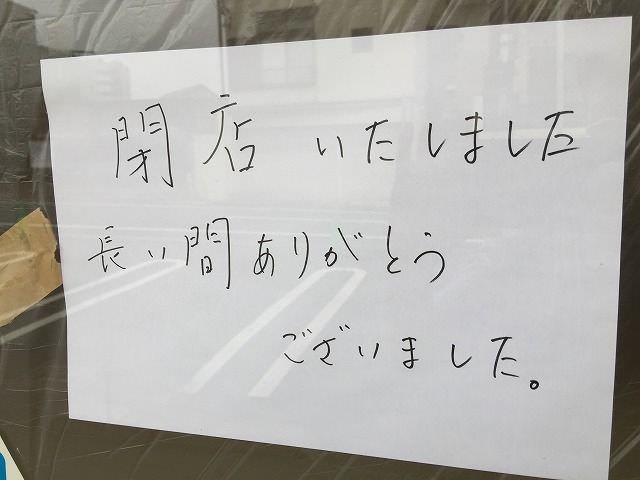 閉店いたしました
長い間ありがとう
ございました。